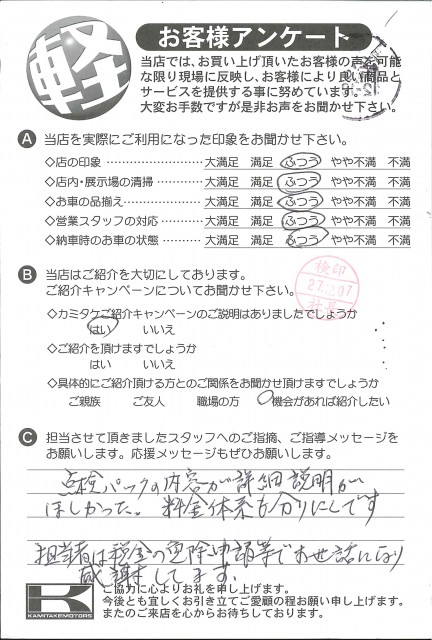 軽
お客様アンケート
当店では、お買い上げ頂いたお客様の声を可能
な限り現場に反映し、お客様により良い商品と
サービスを提供する事に努めています。
大変お手数ですが是非お声をお聞かせ下さい。
A 当店を実際にご利用になった印象をお聞かせ下さい。
◇店の印象 ………………… 大満足 満足 ふつう やや不満 不満
◇店内・展示場の清掃 ……… 大満足 満足 ふつう やや不満 不満
◇お車の品揃え …………… 大満足 満足 ふつう やや不満 不満
◇営業スタッフの対応 ……… 大満足 満足 ふつう やや不満 不満
◇納車時のお車の状態 ……… 大満足 満足 ふつう やや不満 不満
B 当店はご紹介を大切にしております。
ご紹介キャンペーンについてお聞かせ下さい。
検印
27.12.07
社長
◇カミタケご紹介キャンペーンのご説明はありましたでしょうか
はい いいえ
◇ご紹介を頂けますでしょうか
はい いいえ
◇具体的にご紹介頂ける方とのご関係をお聞かせ頂けますでしょうか
ご親族 ご友人 職場の方 機会があれば紹介したい
C 担当させて頂きましたスタッフへのご指摘、ご指導メッセージを
お願いします。応援メッセージもぜひお願いします。
点検パックの内容が詳細説明が
ほしかった。料金体系も分りにくいです
担当者は税金の免除申請等でお世話になり
感謝してます。
K
KAMITAKEMOTORS
ご協力に心よりお礼を申し上げます。
今後とも宜しくお引き立てご愛顧の程お願い申し上げます。
またのご来店を心からお待ちしております。